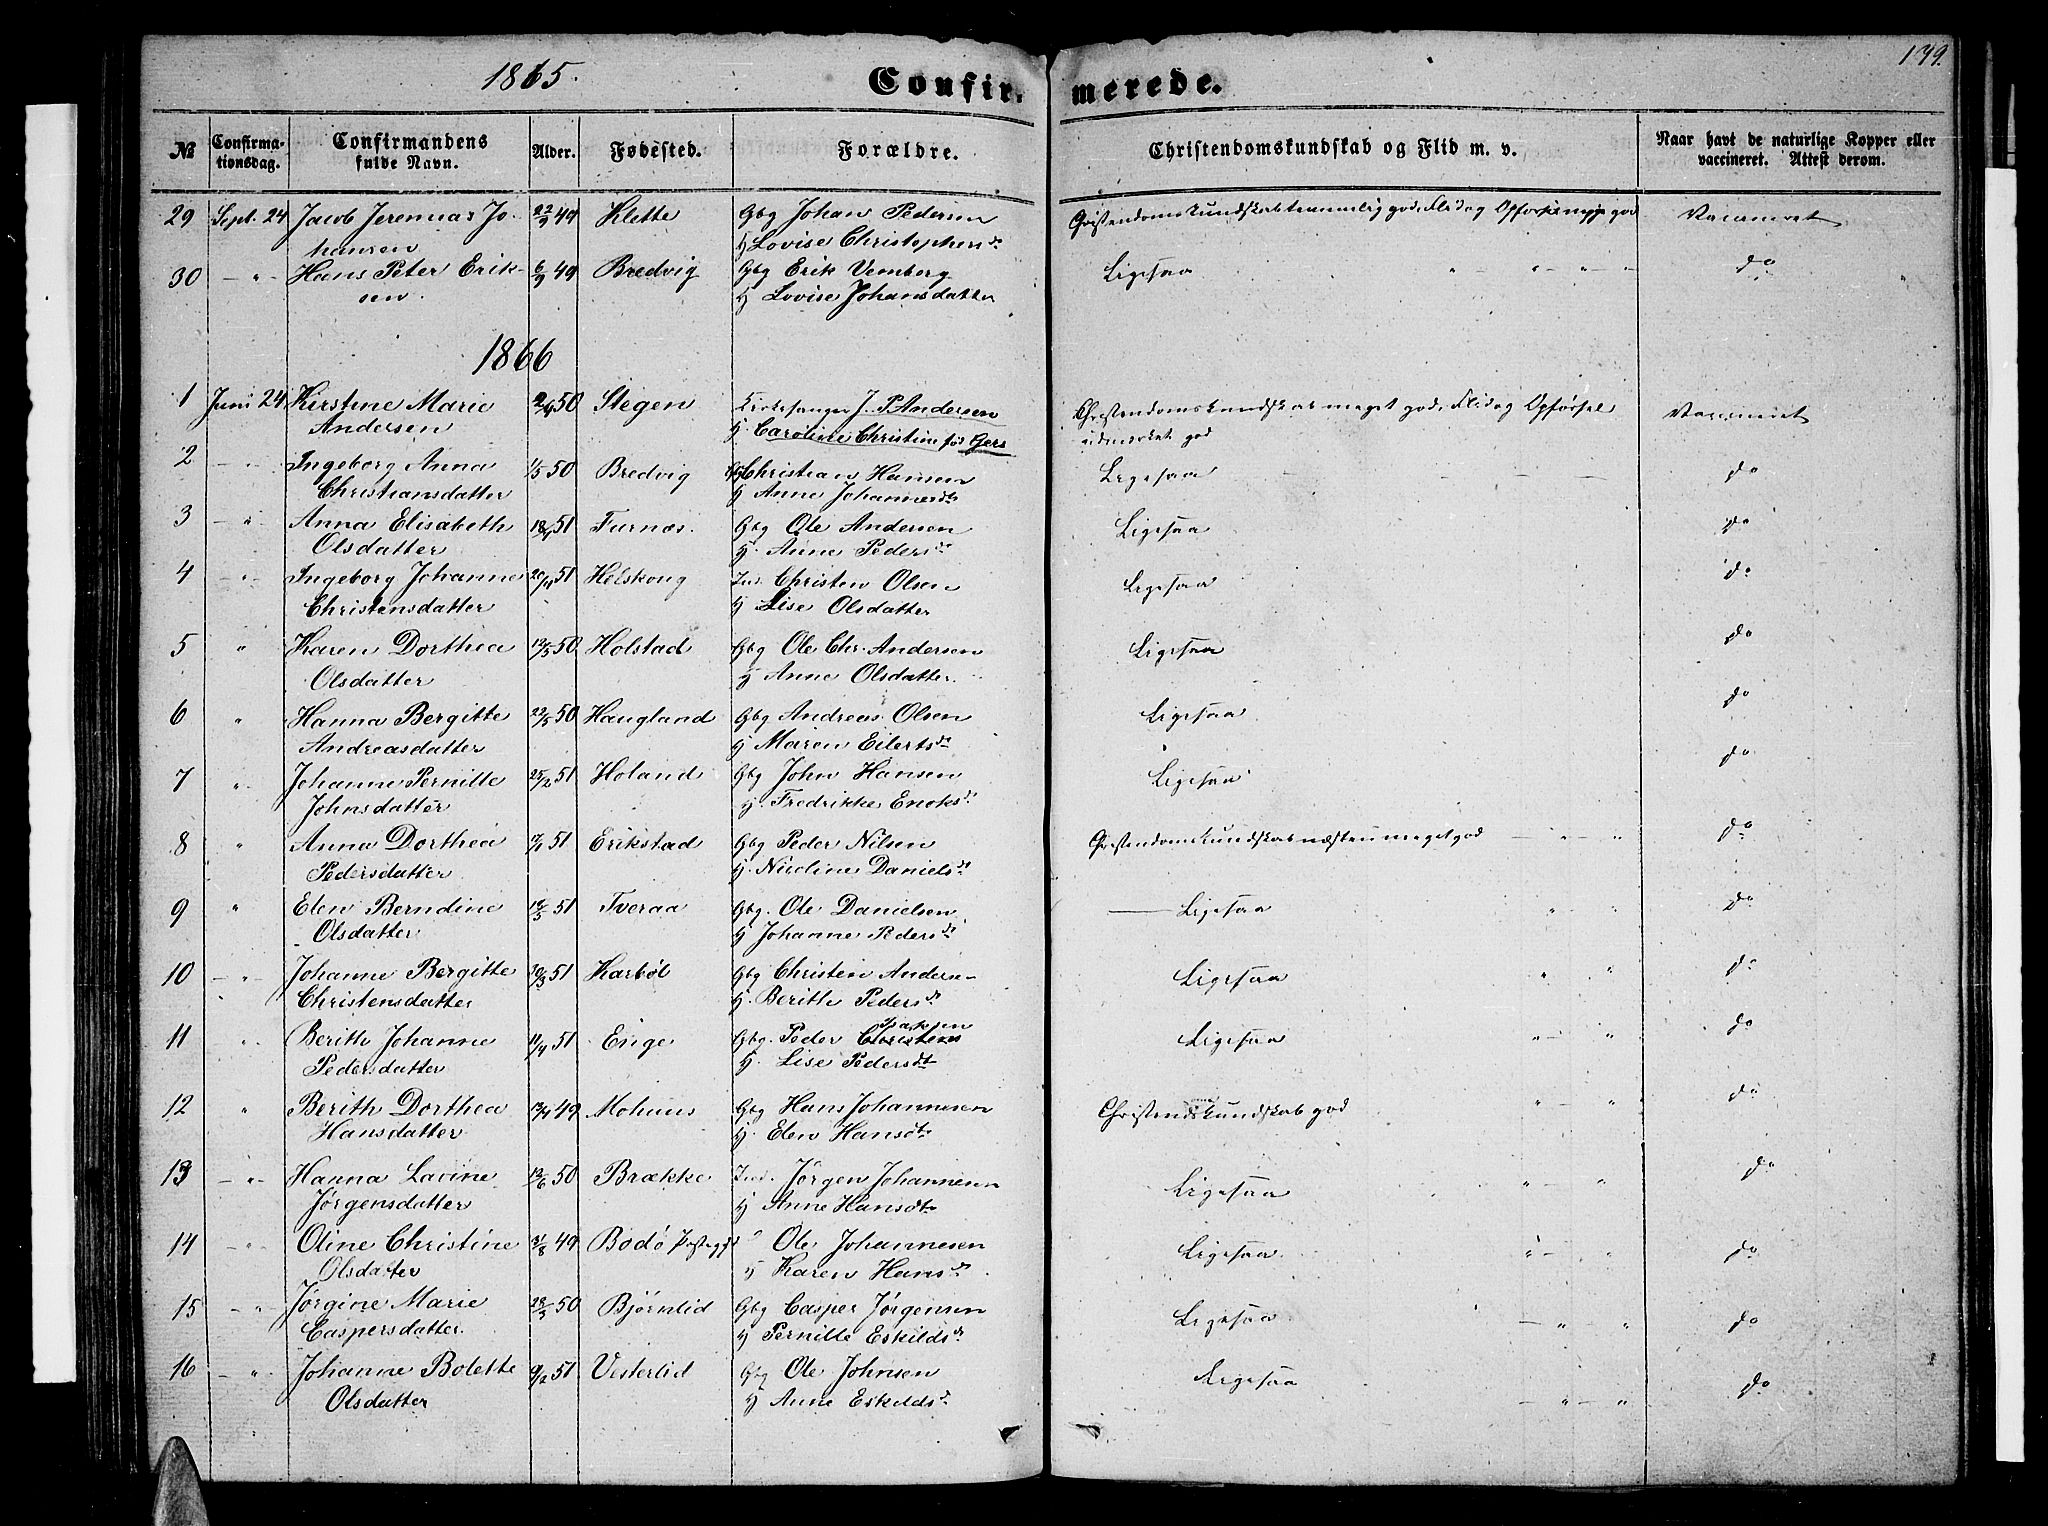 1865.
Confirmerede.
139.
№ Confirmationsdag. Confirmandens fulde Navn. Alder. Fødested. Forældre. Christendomskundskab og Flid m. v. Naar havt de naturlige Kopper eller vaccineret. Attest derom.
29 Sept. 24 Jacob Jeremias Jo- 22/9 49 Klette Gbg Johan Pedersen Christendomskundskab temmelig god, Flid og Opførsel god Vaccineret
hansen H Lovise Christophersd.
30 — " Hans Peter Erik- 6/9 49 Bredvig Gbg Erik Vemberg Ligesaa " — " — " — " do
sen. H Lovise Johansdatter
1866
1 Juni 24 Kirstine Marie 50 Stegen Kirkesanger J. P. Andersen Christendomskundskab meget god, Flid og Opførsel Vaccineret
Andersen H. Caroline Christine fød Gers udmærket god
2 — " Ingeborg Anna 1/5 50 Bredvig Gbg Christian Hansen Ligesaa — — — do
Christiansdatter H Anne Johannesdt
3 — " Anna Elisabeth 18/1 51 Furnæs. Gbg Ole Andersen Ligesaa do
Olsdatter H. Anne Pedersd.
4 " Ingeborg Johanne 51 Helskong Ind. Christen Olsen Ligesaa do
Christensdatter H Lise Olsdatter
5 " Karen Dorthea 19/5 50 Holstad Gbg Ole Chr. Andersen Ligesaa do
Olsdatter H Anne Olsdatter.
6 " Hanna Bergitte 22/5 50 Haugland Gbg Andreas Olsen Ligesaa do
Andreasdatter H Maren Eilertsd.
7 " Johanne Pernille 25/2 51 Holand Gbg John Hansen Ligesaa do
Johnsdatter H. Fredrikke Enoksd.
8 " Anna Dorthea 51 Erikstad Gbg Peder Nilsen Christendomskundskab næsten meget god — " — " do
Pedersdatter H. Nicoline Danielsd.
9 " Elen Berndine 18/5 51 Tveraa Gbg. Ole Danielsen — Ligesaa " — " do
Olsdatter H Johanne Pedersd.
10 — " Johanne Bergitte 30/3 51 Karbøl Gbg Christen Andersen Ligesaa " " do
Christensdatter H. Berith Pedersd.
11 " Berith Johanne 11/4 51 Enge Gbg. Peder Christens Isaksen Ligesaa " — " do
Pedersdatter H. Lise Pedersdt
12 " Berith Dorthea 49 Mohuus Gbg Hans Johannesen Christendomskundskab god " — " do
Hansdatter H. Elen Hansdt.
13 — " Hanna Lavine 12/6 50 Brække Ind. Jørgen Johannesen Ligesaa " — " do
Jørgensdatter H Anne Hansdt.
14 — " Oline Christine 31/8 49 Bodø " Ole Johannesen Ligesaa " — " do
Olsdatter H Karen Hansd.
15 — " Jørgine Marie 28/3 50 Bjørnlid Gbg Casper Jørgensen Ligesaa — " — " do
Caspersdatter. H Pernille Eskildsd.
16 — " Johanne Bolette 9/2 51 Vesterlid Gbg Ole Johnsen Ligesaa — " — " do
Olsdatter H Anne Eskildsd.